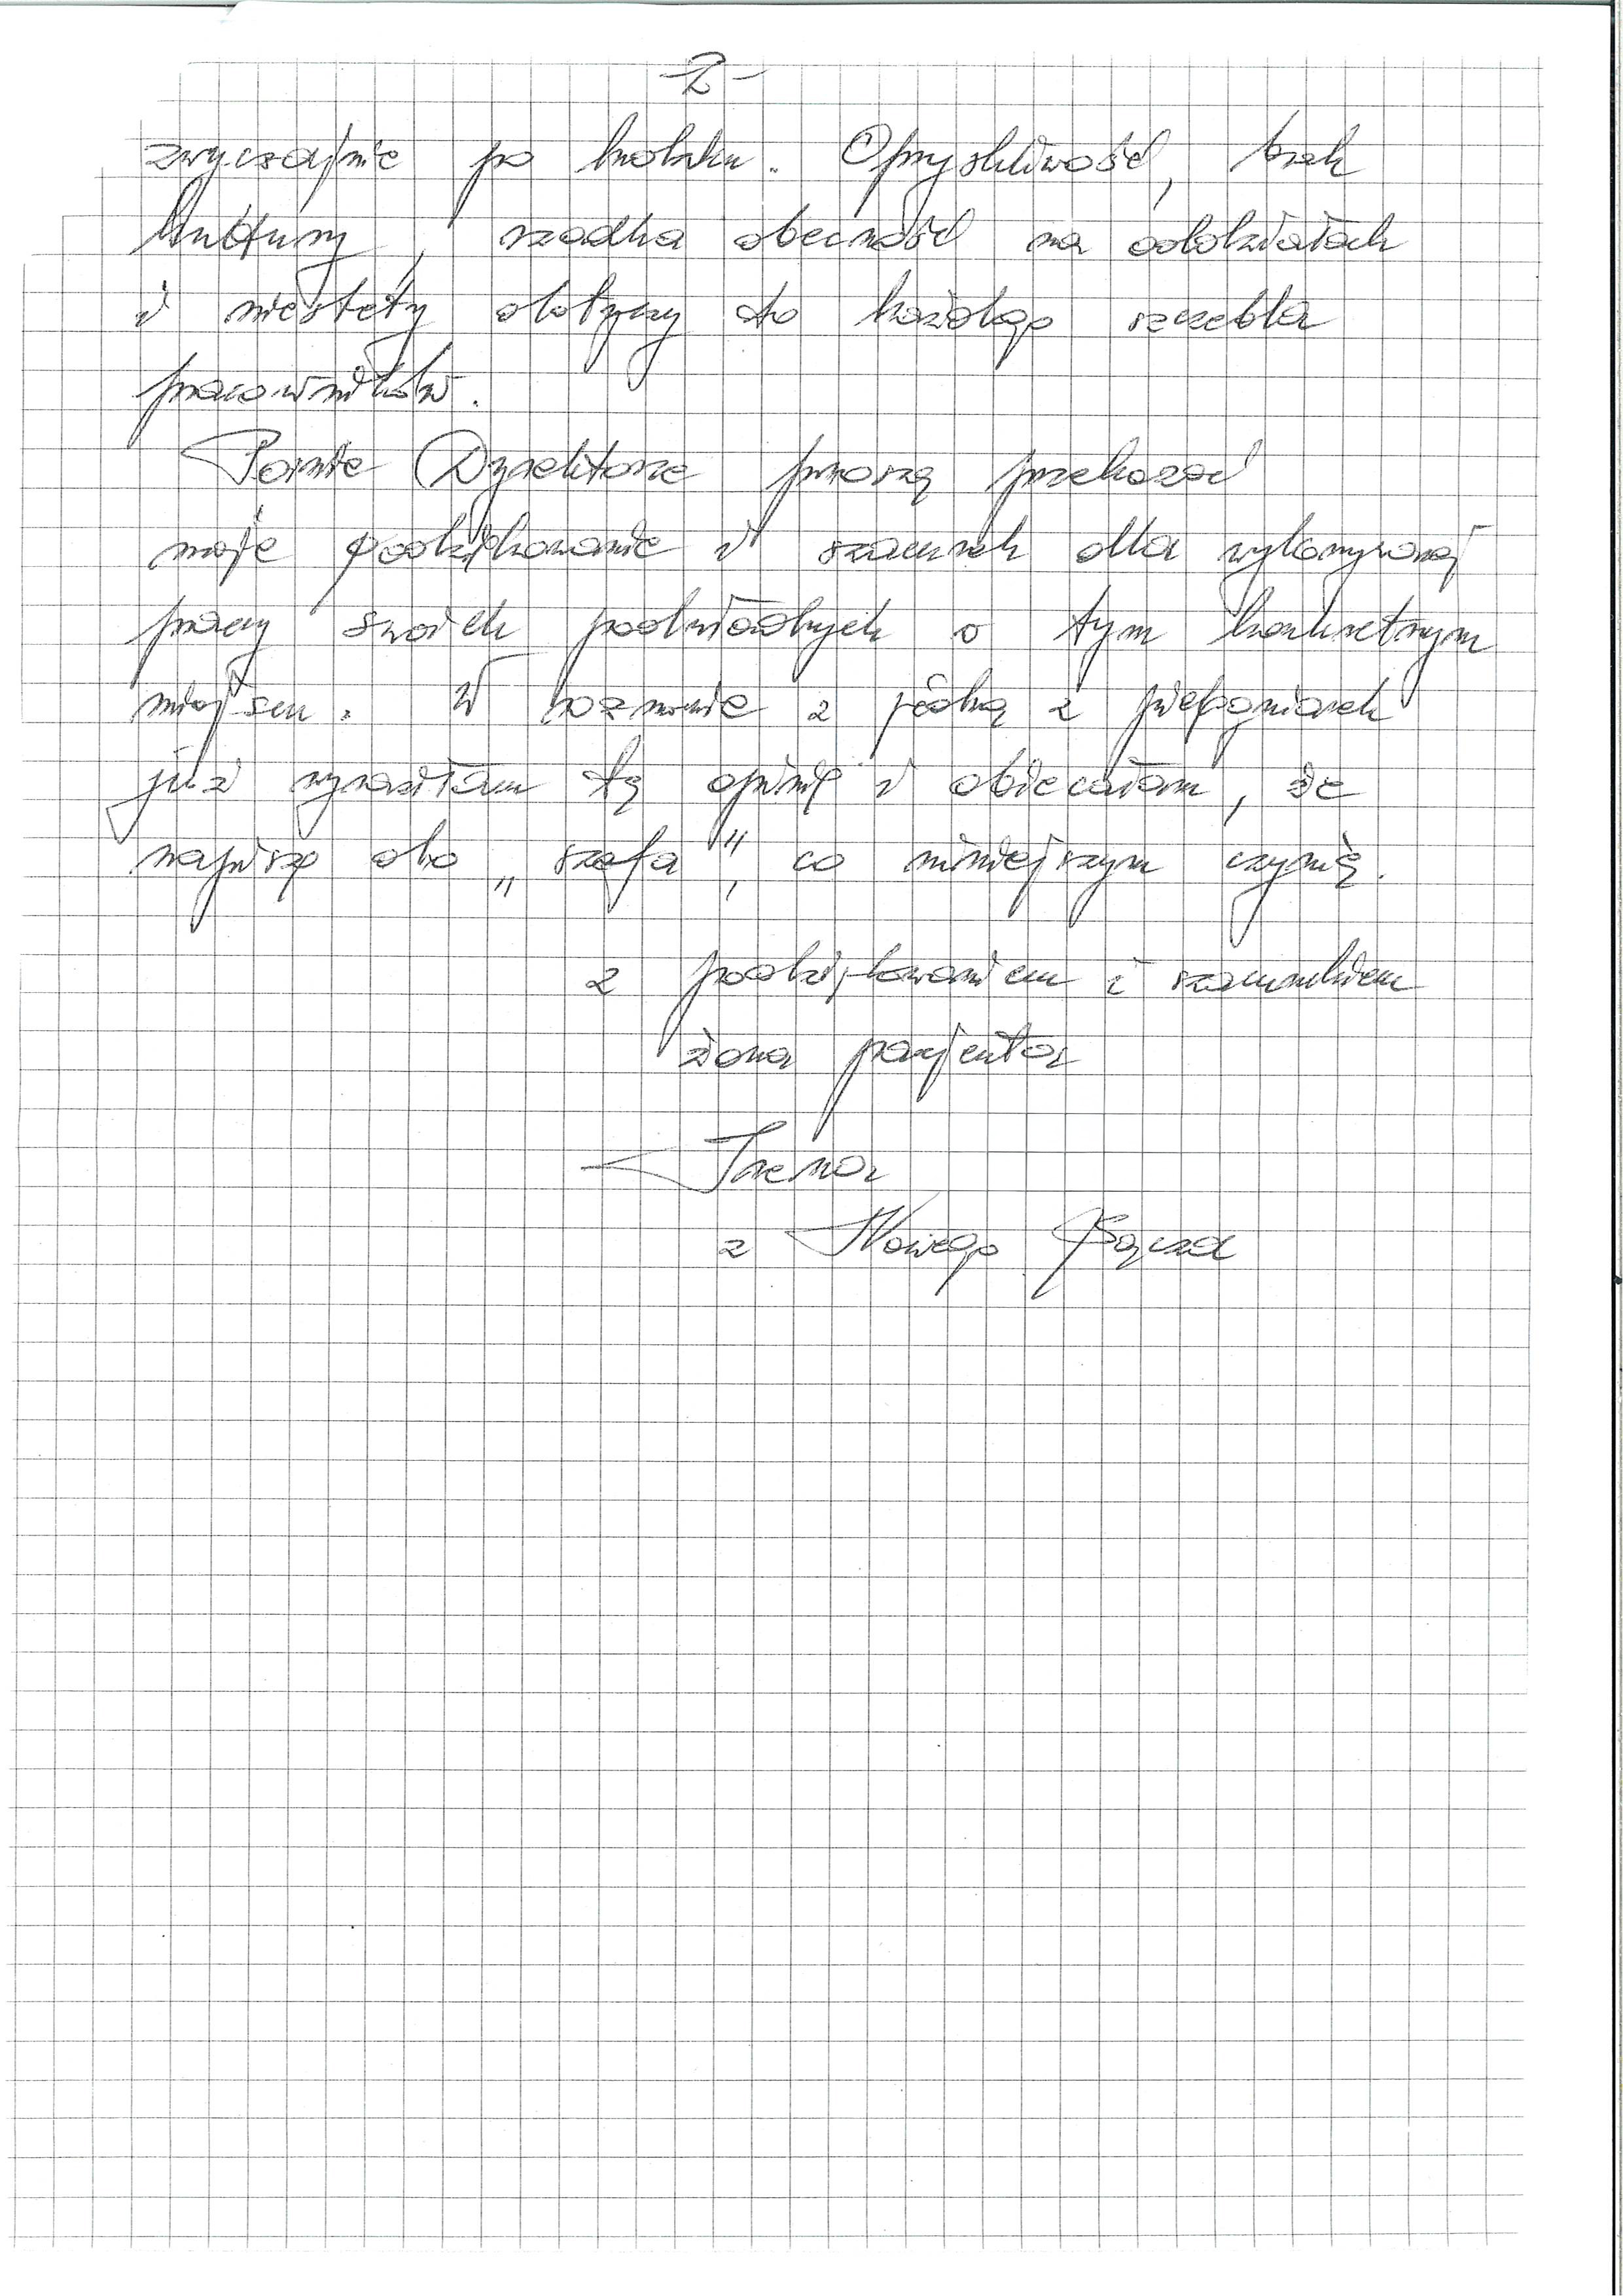 -2-
zwyczajnie po ludzku. Opryskliwość, brak
kultury, rzadka obecność na oddziałach
i niestety dotyczy to każdego szczebla
pracowników.
Panie Dyrektorze proszę przekazać
moje podziękowanie i szacunek dla wykonywanej
pracy swoich podwładnych o tym konkretnym
miejscu. W rozmowie z jedną z pielęgniarek
już wyraziłam tę opinię i obiecałam, że
napiszę do „szefa", co niniejszym czynię.
z podziękowaniem i szacunkiem
żona pacjenta
Irena
z Nowego Sącza